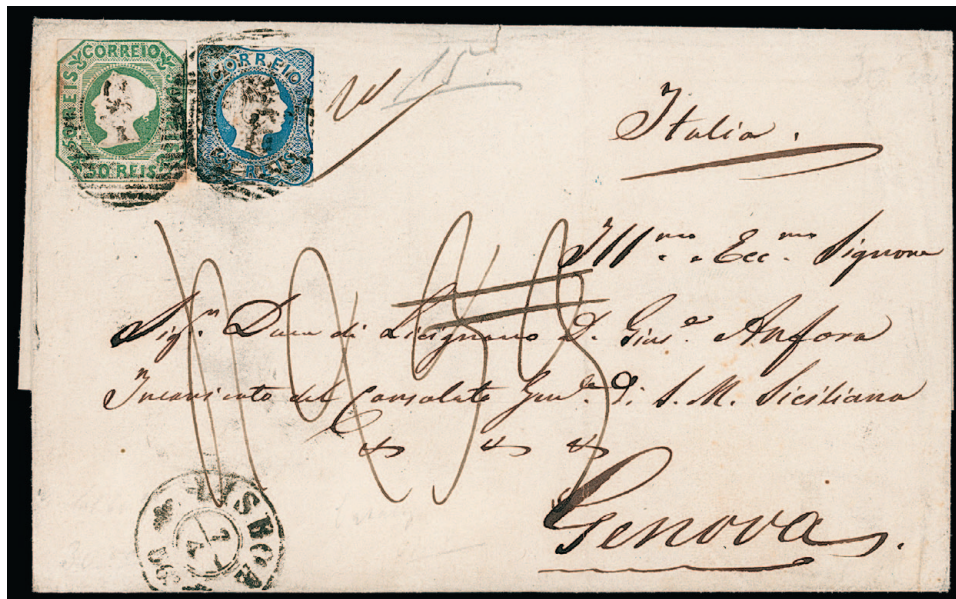 CORREIO
50 REIS
CORREIO
15
Italia.
Ill.mo Ecc.mo Signore
Sig.r Duca di Licignano D. Gius.e Anfora
Incaricato del Consolato Gen.le di S. M. Siciliana
Genova.
LISBOA